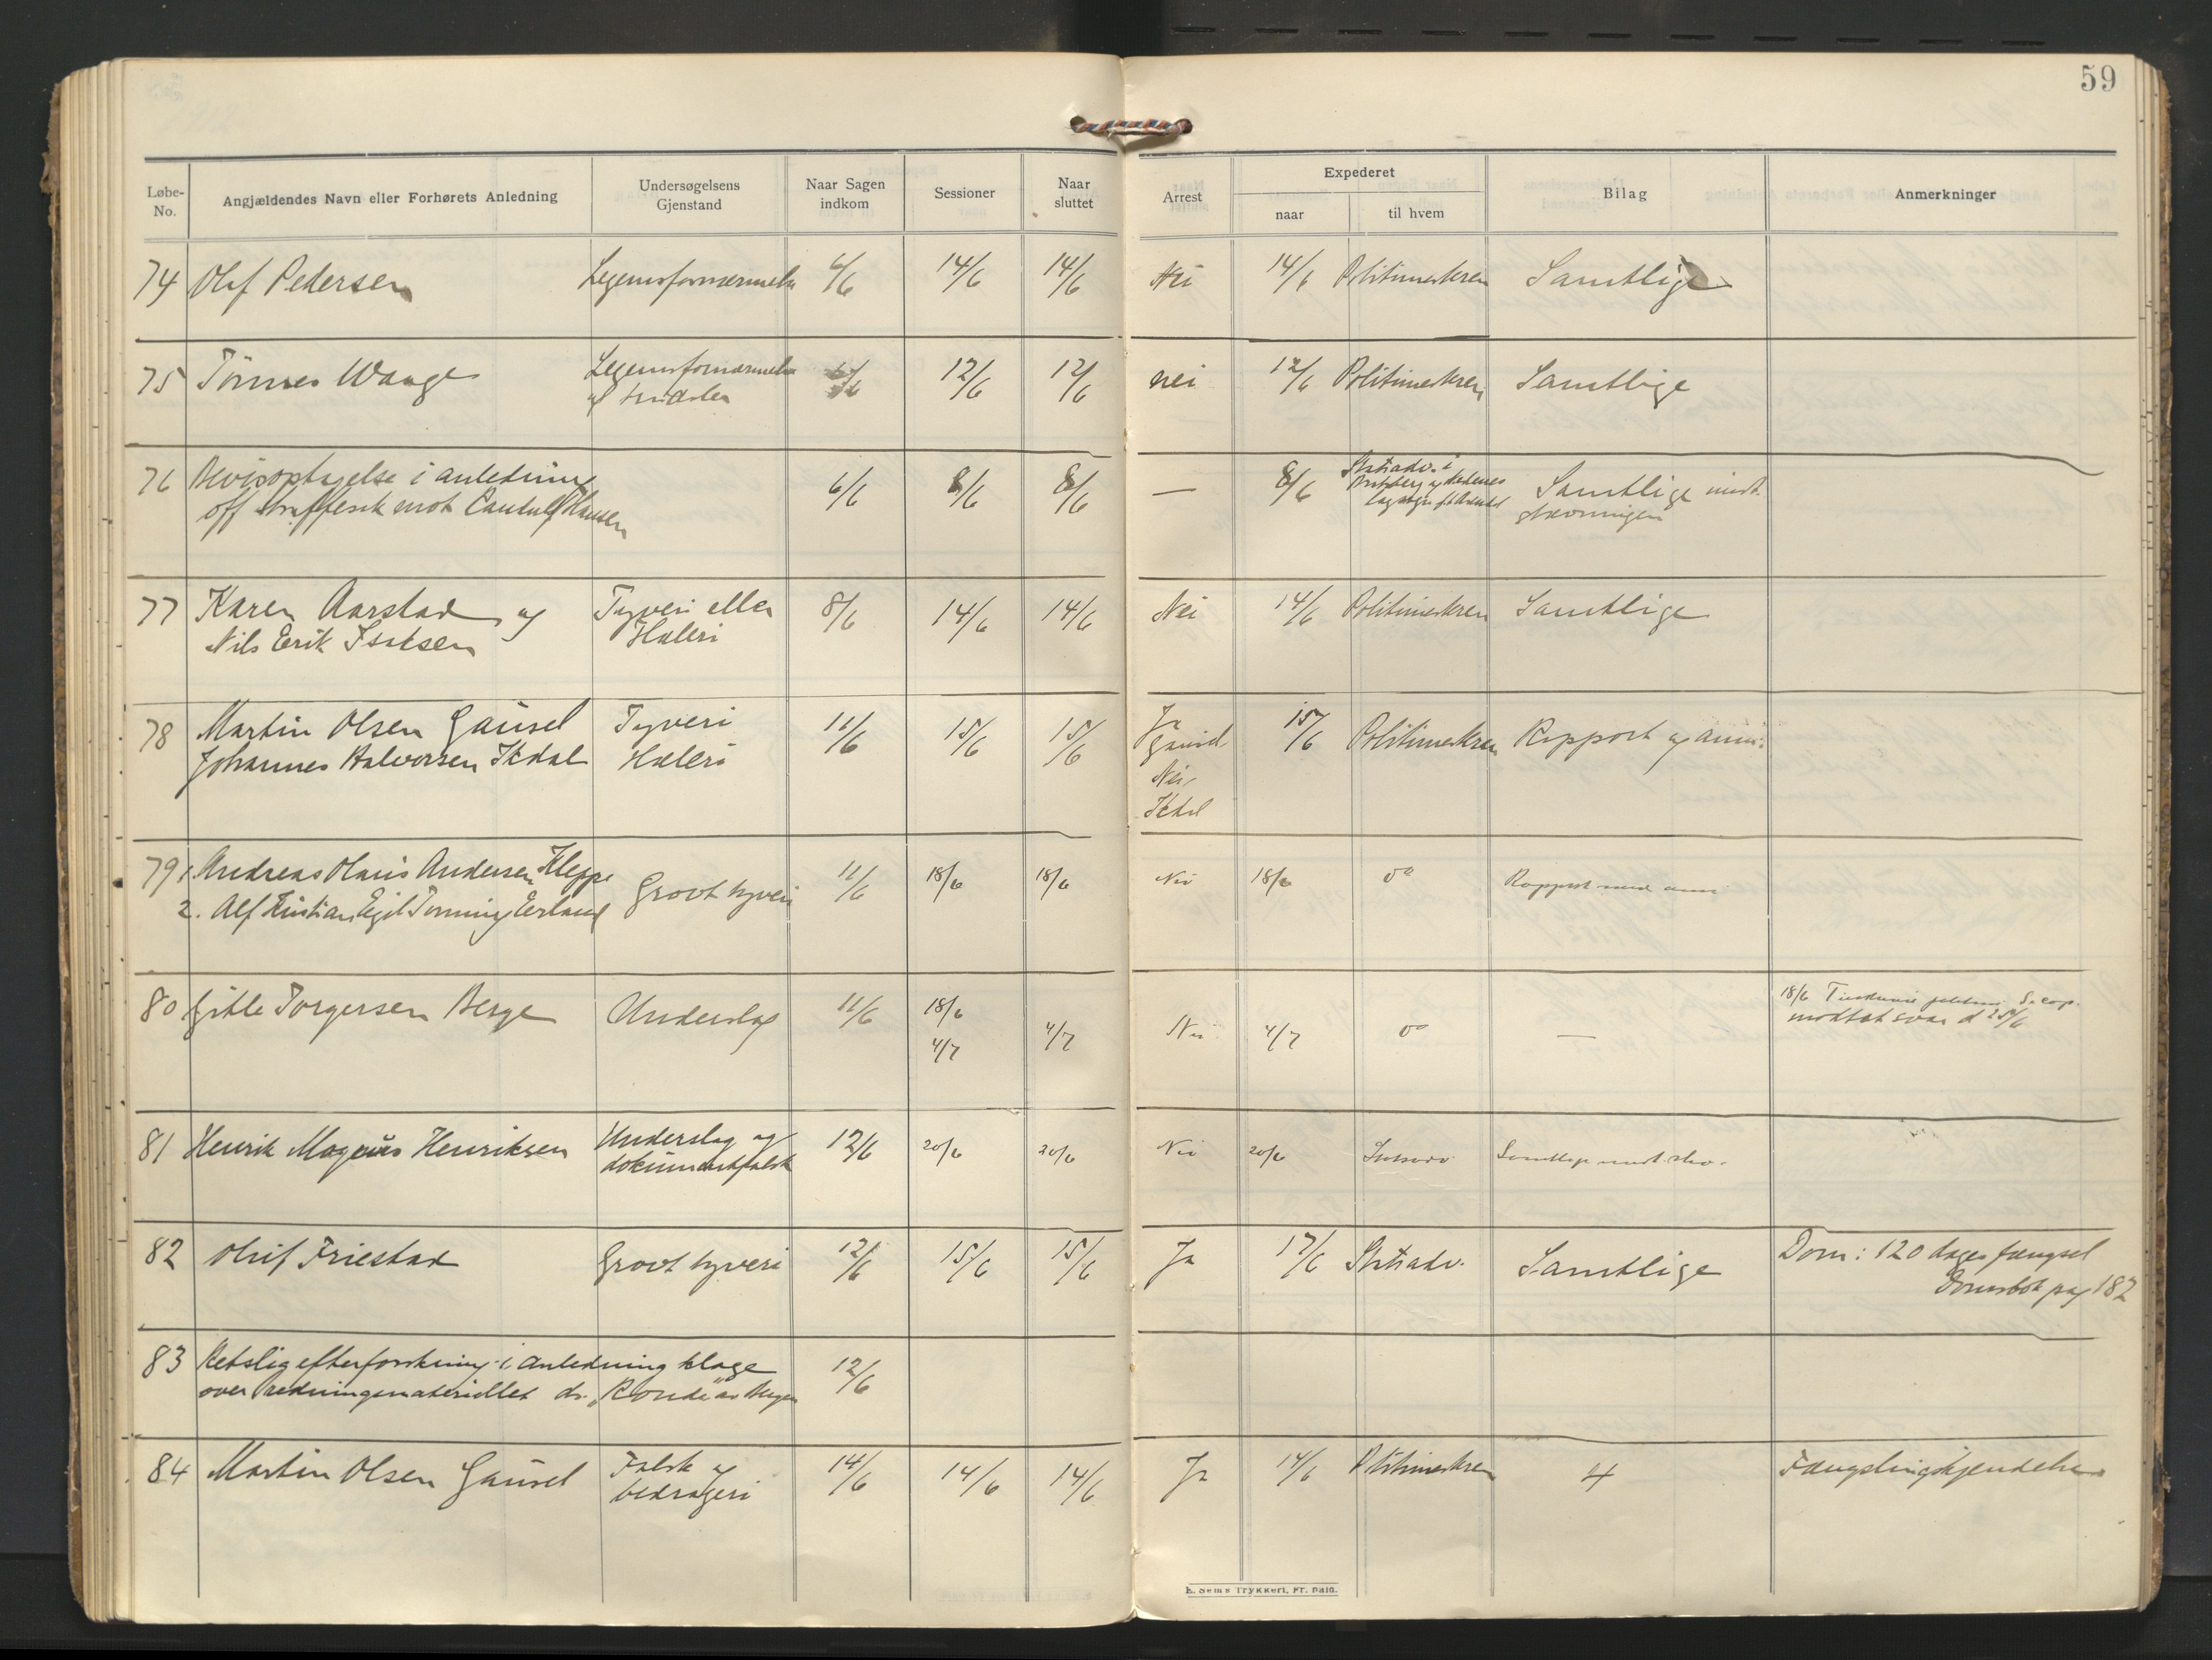 59
Løbe-No. Angjældendes Navn eller Forhørets Anledning Undersøgelsens Gjenstand Naar Sagen indkom Sessioner Naar sluttet Arrest Expederet naar til hvem Bilag Anmerkninger
74 Olaf Pedersen Legemsfornærmelse 6/6 14/6 14/6 Nei 14/6 Politimesteren Samtlige
75 Tönnes Waage Legemsfornærmelse 12/6 12/6 nei 12/6 Politimesteren Samtlige
og trudsler 6/6
76 Bevisoptagelse i anledning 6/6 8/6 8/6 — 8/6 Statsadv. i Samtlige undt.
off straffesak mot Hansen lagsogn stevningen
77 Karen Aarstad og Tyveri eller 8/6 14/6 14/6 Nei 14/6 Politimesteren Samtlige
Nils Erik Isaksen Hæleri
78 Martin Olsen Gausel Tyveri 11/6 15/6 15/6 Ja 15/6 Politimesteren Rapport og anm.
Johannes Halvorsen Hæleri Gausel
Nei
79 1 Andreas Olaus Andersen Kleppe Grovt tyveri 11/6 18/6 18/6 Nei 18/6 do Rapport med anm
2. Alf Kristian Egil Erland
80 Gitle Torgersen Berge Underslag 11/6 18/6 4/7 Nei 4/7 do — 18/6
4/7 modtat svar d 25/6
81 Henrik Magnus Henriksen Underslag og 12/6 20/6 20/6 Nei 20/6 Statsadv Samtlige undt. stev.
dokumentfalsk
82 Oluf Friestad Grovt tyveri 12/6 15/6 15/6 Ja 17/6 Statsadv. Samtlige Dom: 120 dages fængsel
Domsbok pag 182
83 Retslig efterforskning i anledning klage 12/6
over redningsmateriellet ds. "Ronde" av Bergen
84 Martin Olsen Gausel Falsk og 14/6 14/6 14/6 Ja 14/6 Politimesteren 4 Fængslingskjendelse
bedrageri
E. Sems Trykkeri, Fr. hald.